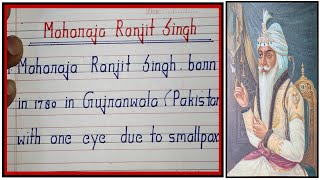 Maharaja Ranjit Singh
Maharaja Ranjit Singh. born
in 1780 in Gujranwala (Pakistan
with one eye due to smallpox